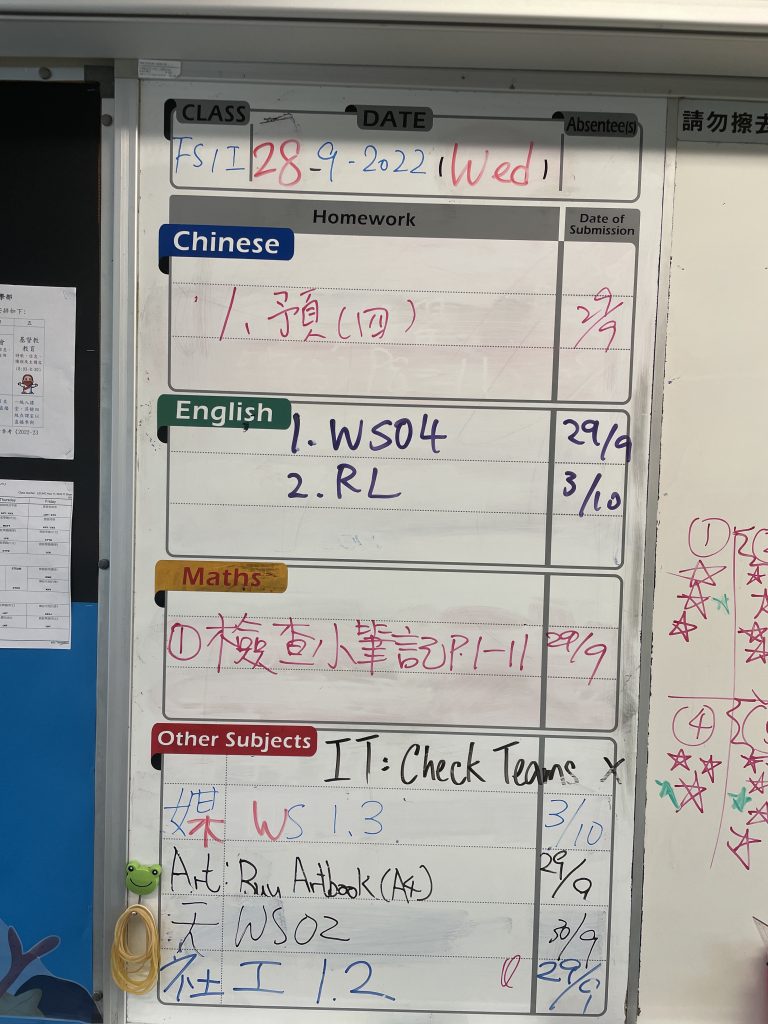 CLASS DATE Absentee(s)
28-9-2022 (Wed)
Homework Date of Submission
Chinese
1. 預(四) 29/9
English
1. WS04 29/9
2. RL 3/10
Maths
① 檢查小筆記P.1-11 29/9
Other Subjects
IT: Check Teams X
媒 WS 1.3 3/10
Art: Artbook (A4) 29/9
天 WS02 30/9
社 工 1.2 29/9
請勿擦去
①
④
基督教
教育
Thursday Friday